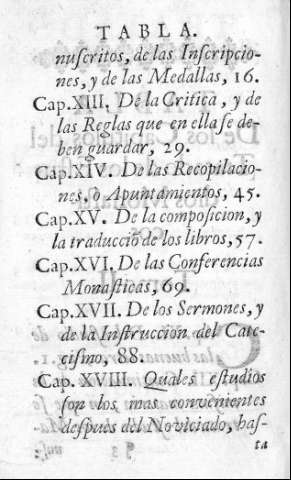 TABLA.
nuscritos, de las Inscripcio-
nes, y de las Medallas, 16.
Cap.XIII. De la Critica, y de
las Reglas que en ella se de-
ben guardar, 29.
Cap.XIV. De las Recopilacio-
nes, o Apuntamientos, 45.
Cap.XV. De la composicion, y
la traducciõ de los libros, 57.
Cap.XVI. De las Conferencias
Monasticas, 69.
Cap.XVII. De los Sermones, y
de la Instruccion del Cate-
cismo, 88.
Cap.XVIII. Quales estudios
son los mas convenientes
despues del Noviciado, has-
ta